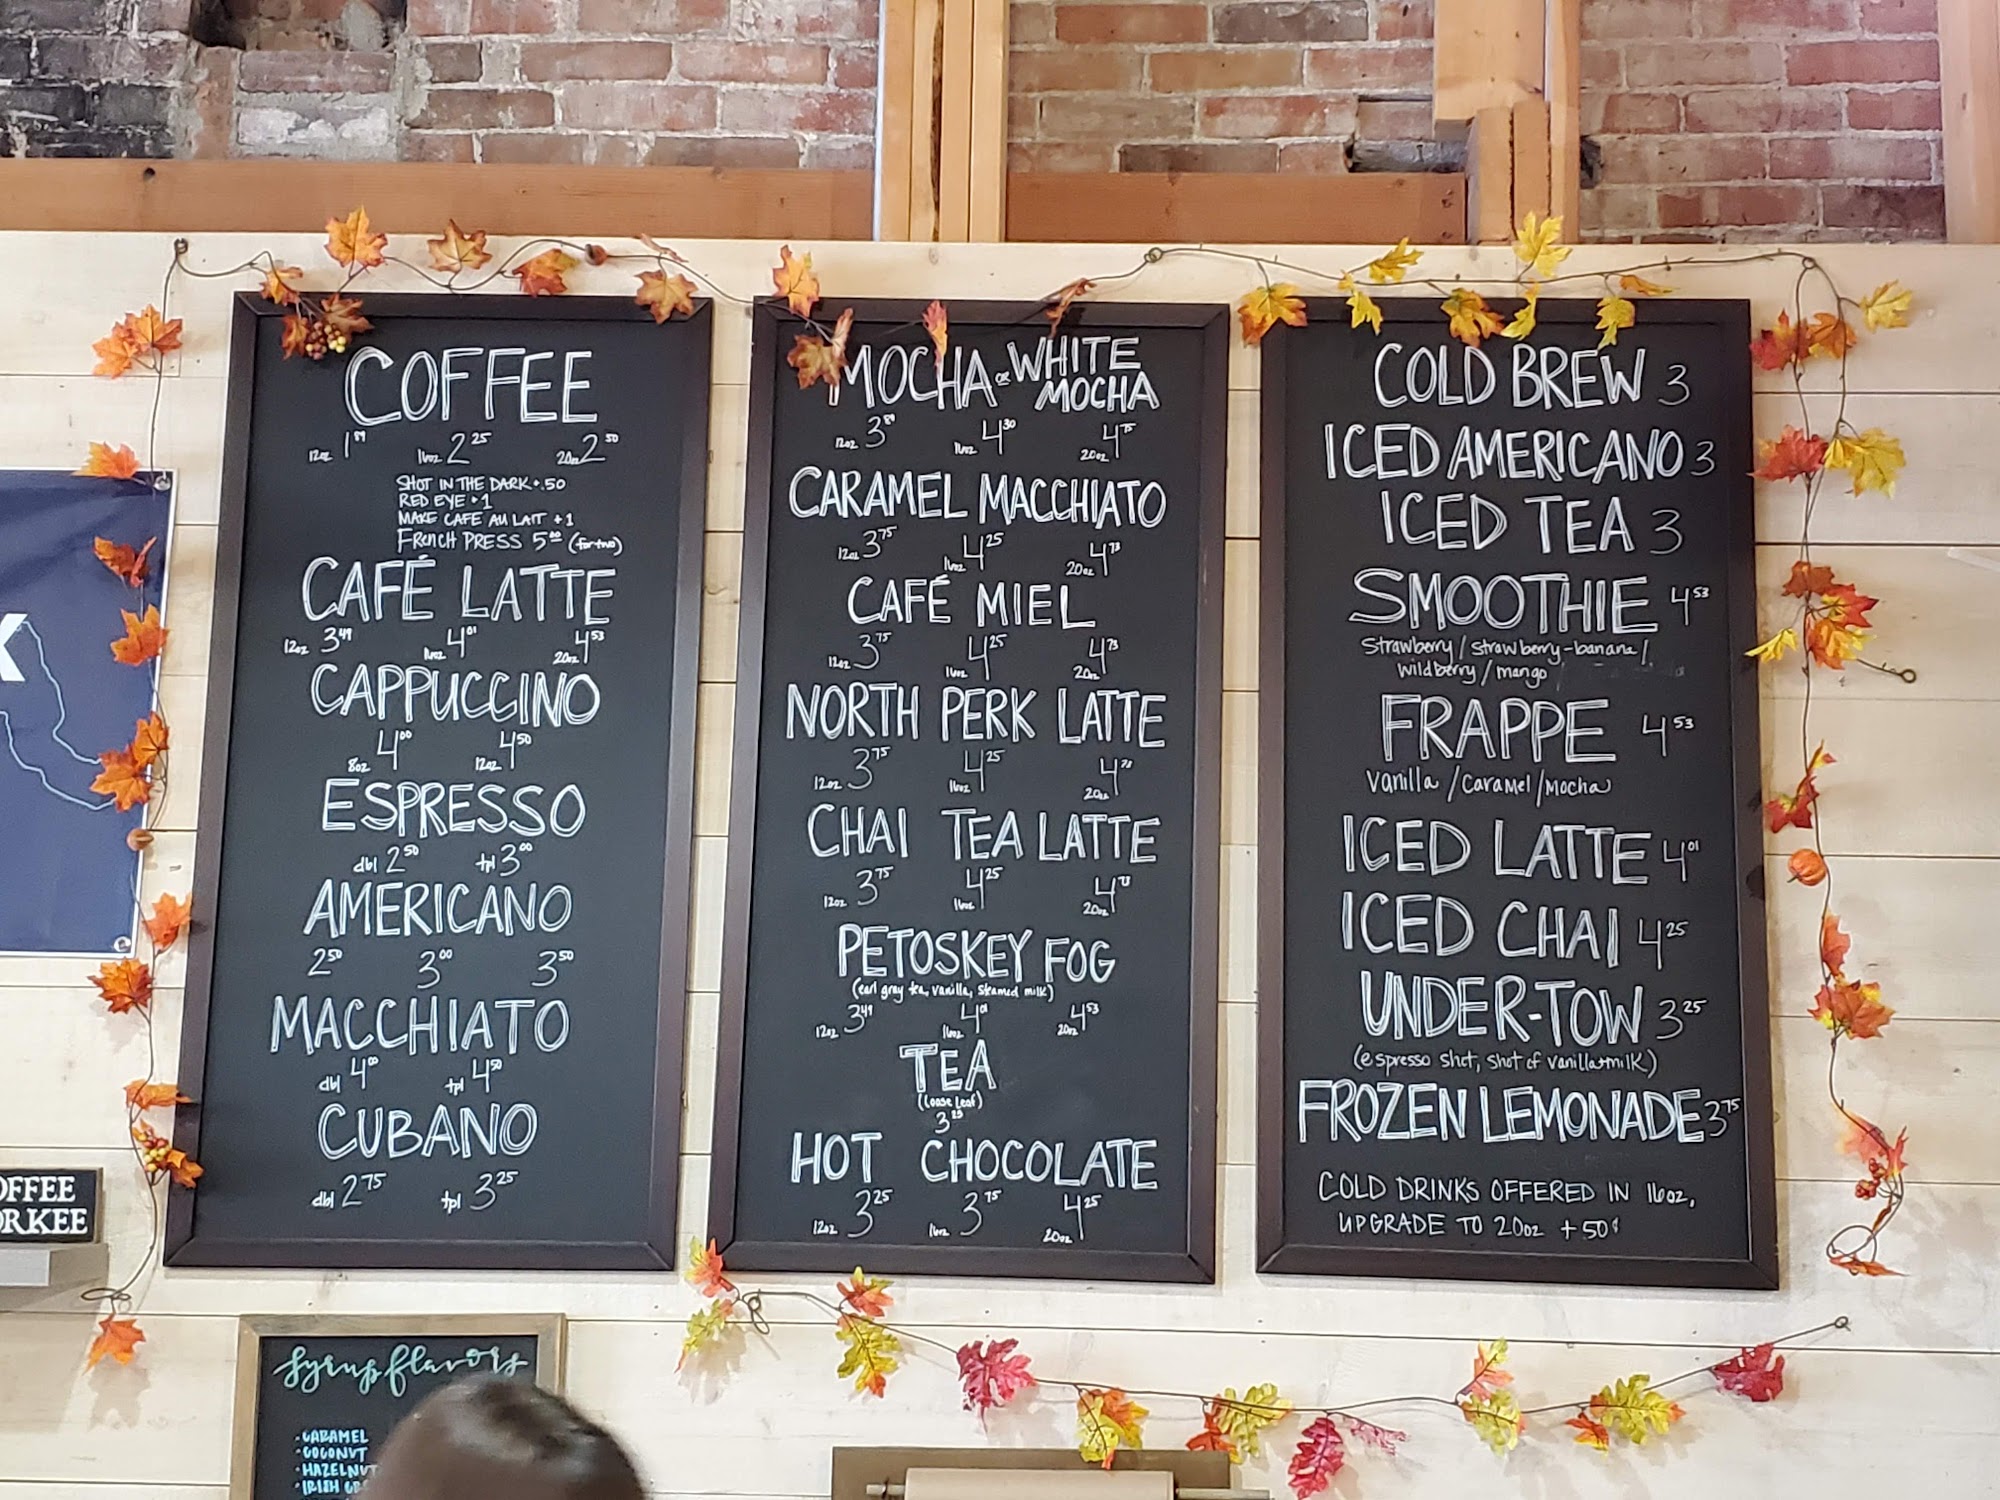 COFFEE
12oz 1.89 16oz 2.25 20oz 2.50
SHOT IN THE DARK +.50
RED EYE +1
MAKE CAFE AU LAIT +1
FRENCH PRESS 5.00 (for two)
CAFÉ LATTE
12oz 3.49 16oz 4.01 20oz 4.53
CAPPUCCINO
8oz 4.00 12oz 4.50
ESPRESSO
dbl 2.50 tpl 3.00
AMERICANO
2.50 3.00 3.50
MACCHIATO
dbl 4.00 tpl 4.50
CUBANO
dbl 2.75 tpl 3.25
MOCHA or WHITE MOCHA
12oz 3.89 16oz 4.30 20oz 4.75
CARAMEL MACCHIATO
12oz 3.75 16oz 4.25 20oz 4.73
CAFÉ MIEL
12oz 3.75 16oz 4.25 20oz 4.73
NORTH PERK LATTE
12oz 3.75 16oz 4.25 20oz 4.73
CHAI TEA LATTE
12oz 3.75 16oz 4.25 20oz 4.73
PETOSKEY FOG
(earl gray tea, vanilla, steamed milk)
12oz 3.49 16oz 4.01 20oz 4.53
TEA
(loose leaf)
3.25
HOT CHOCOLATE
12oz 3.25 16oz 3.75 20oz 4.25
COLD BREW 3
ICED AMERICANO 3
ICED TEA 3
SMOOTHIE 4.53
strawberry / strawberry-banana /
wildberry / mango
FRAPPE 4.53
vanilla / caramel / mocha
ICED LATTE 4.01
ICED CHAI 4.25
UNDER-TOW 3.25
(espresso shot, shot of vanilla + milk)
FROZEN LEMONADE 3.75
COLD DRINKS OFFERED IN 16oz,
UPGRADE TO 20oz +50¢
OFFEE
ORKEE
syrup flavors
·CARAMEL
·COCONUT
·HAZELNUT
·IRISH